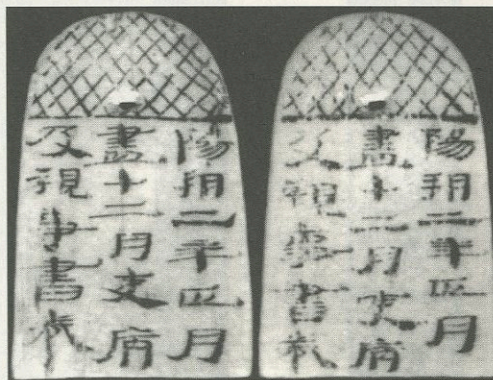 陽朔二年正月
盡十二月吏病
及視事書卷
陽朔二年正月
盡十二月吏病
及視事書卷